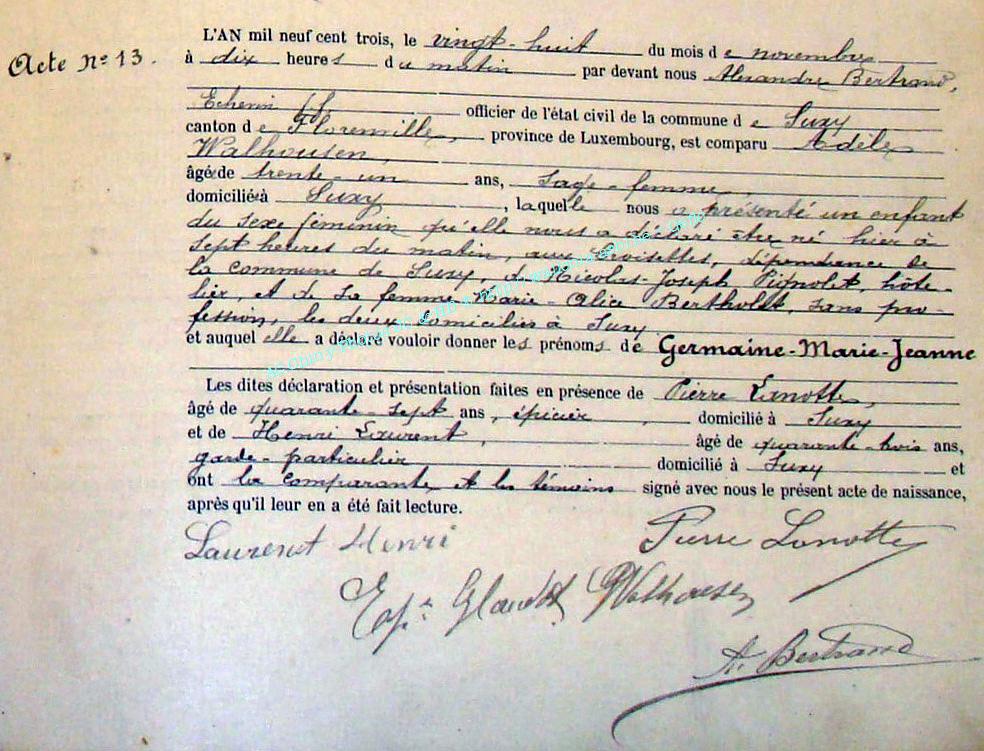 Acte nº 13.
L'AN mil neuf cent trois, le vingt-huit du mois de novembre
à dix heures du matin par devant nous Alexandre Bertrand,
Echevin ff officier de l'état civil de la commune de Suxy
canton de Florenville, province de Luxembourg, est comparu Adèle
Walhousen,
âgée de trente-un ans, sage-femme,
domiciliée à Suxy, laquelle nous a présenté un enfant
du sexe féminin qu'elle nous a déclaré être né hier à
sept heures du matin, aux Croisettes, dépendance de
la commune de Suxy, de Nicolas-Joseph Pignolet, hôte-
lier, et de sa femme Marie-Alice Bertholet, sans pro-
fession, les deux domiciliés à Suxy
et auquel elle a déclaré vouloir donner les prénoms de Germaine-Marie-Jeanne
Les dites déclaration et présentation faites en présence de Pierre Lanotte,
âgé de quarante-sept ans, épicier, domicilié à Suxy
et de Henri Laurent, âgé de quarante-trois ans,
garde-particulier domicilié à Suxy et
ont la comparante et les témoins signé avec nous le présent acte de naissance,
après qu'il leur en a été fait lecture.
Laurent Henri
Pierre Lanotte
Walhousen
A. Bertrand